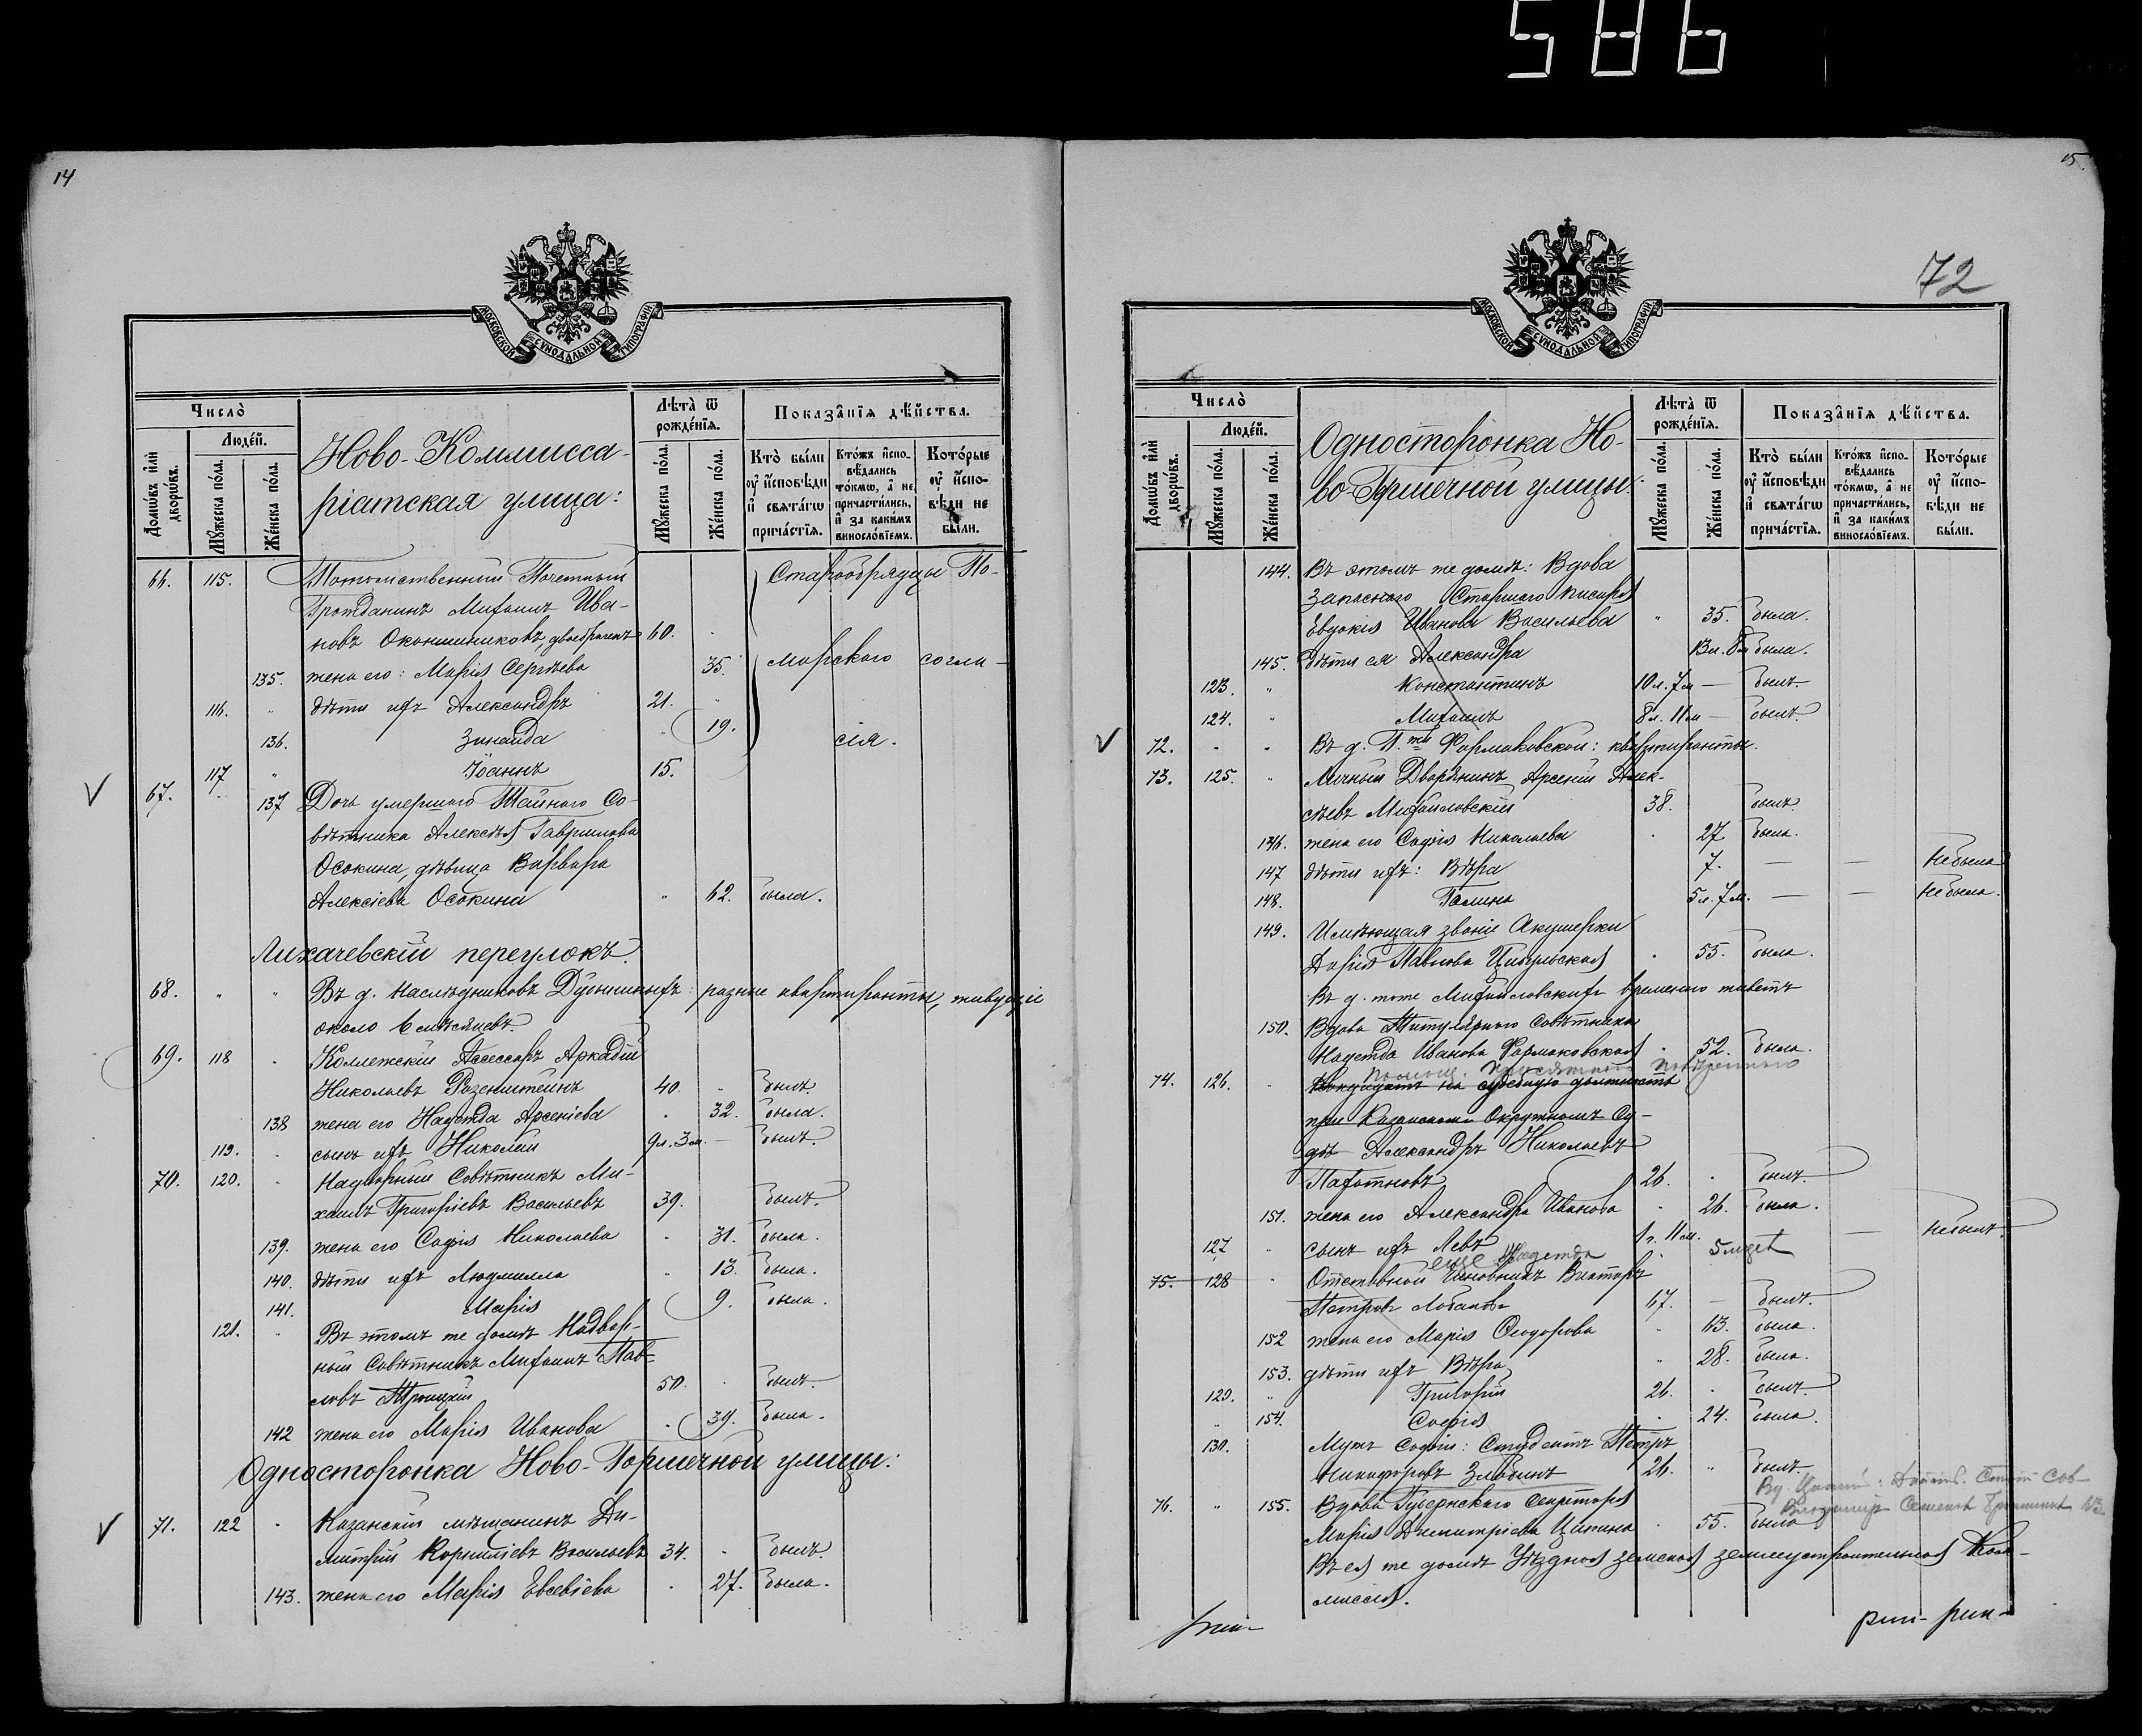 586
14
МОСКОВСКОЙ СѴНОДАЛЬНОЙ ТИПОГРАФІИ
Число̀
Людей.
Домѡвъ и҆лѝ дворѡвъ.
Мꙋжеска по́ла.
Же́нска по́ла.
Ново-Коммисса-
ріатская улица:
Лѣта̀ ѿ рожде́нїѧ.
Мꙋжеска по́ла.
Же́нска по́ла.
Показа̑нїѧ дѣ́йства.
Кто̀ бы́ли ᲂу҆ и҆сповѣди и҆ свѧта́гѡ прича́стїѧ.
Кто́жъ и҆спо-вѣдались то́кмѡ, а҆ не причасти́лись, и҆ за каки́мъ винословїемъ.
Кото́рые ᲂу҆ и҆спо-вѣди не бы́ли.
66. 115. Потомственный Почетный Старообрядцы По-
Гражданинъ Михаилъ Ива-
новъ Оконишниковъ, двоебраченъ 60.
135. жена его: Марія Сергѣева 35. морскаго согла-
116. " дѣти ихъ Александръ 21.
136. Зинаида 19. сія.
117 " Іоаннъ 15.
67. 137 Дочь умершаго Тайнаго Со-
вѣтника Алексѣя Гаврилова
Осокина, дѣвица Варвара
Алексіева Осокина " 62. была.
Лихачевскій переулокъ.
68. " " Въ д. наслѣдниковъ : разные квартиранты, живущіе
около 6 мѣсяцевъ.
69. 118 Коллежскій Ассессоръ Аркадій
Николаевъ Розенштейнъ 40. былъ.
138 жена его Надежда Арсеніева 32. была.
119. сынъ ихъ Николай 9л. 3м. — былъ.
70. 120. Надворный Совѣтникъ Ми-
хаилъ Григоріевъ Васильевъ 39. былъ.
139. жена его Софія Николаева 31. была.
140. дѣти ихъ Людмилла " 13. была.
141. Марія 9. была.
121. " Въ этомъ же домѣ Надвор-
ный Совѣтникъ Михаилъ Пав-
ловъ Троицкій 50. былъ.
142 жена его Марія Иванова 39. была.
Односторонка Ново-Горшечной улицы:
71. 122 Казанскій мѣщанинъ Ди-
митрій Корниліевъ Васильевъ 34. былъ.
143. жена его Марія Евсевіева 27. была.
15.
72
МОСКОВСКОЙ СѴНОДАЛЬНОЙ ТИПОГРАФІИ
Число̀
Людей.
Домѡвъ и҆лѝ дворѡвъ.
Мꙋжеска по́ла.
Же́нска по́ла.
Односторонка Но-
во-Горшечной улицы:
Лѣта̀ ѿ рожде́нїѧ.
Мꙋжеска по́ла.
Же́нска по́ла.
Показа̑нїѧ дѣ́йства.
Кто̀ бы́ли ᲂу҆ и҆сповѣди и҆ свѧта́гѡ прича́стїѧ.
Кто́жъ и҆спо-вѣдались то́кмѡ, а҆ не причасти́лись, и҆ за каки́мъ винословїемъ.
Кото́рые ᲂу҆ и҆спо-вѣди не бы́ли.
144. Въ этомъ же домѣ: Вдова
Запаснаго Старшаго писаря
Евдокія Иванова Васильева " 35. была.
145. дѣти ея Александра была.
123. " Константинъ 10л. 7м — былъ.
124. " Михаилъ 8л. 11м — былъ.
72. " " Въ д. Г.жи Фармаковской: квартиранты.
73. 125. " Личный Дворянинъ Арсеній Алек-
сѣевъ Михайловскій 38. былъ
146. жена его Софія Николаева 27. была.
147 дѣти ихъ: Вѣра 7. — — не была
148. Галина 5л. 7м. — — не была.
149. Имѣющая званіе Акушерки
Дарія Павлова 55. была.
Въ д. тоже Михайловскихъ временно живетъ
150. Вдова Титулярнаго Совѣтника
Надежда Иванова Фармаковская 52. была.
Помощ. Присяжнаго Повѣреннаго
74. 126. Кандидатъ на судебную должность
при Казанскомъ Окружномъ Су-
дѣ Александръ Николаевъ
26. былъ.
151. жена его Александра Иванова 26. была.
127 " сынъ ихъ Левъ 1г. 11м. — не былъ.
еще Надежда
75. 128 Отставной Чиновникъ Викторъ
Петровъ Лобановъ 67. — былъ.
152 жена его Марія Ѳеодорова 63. была.
153. дѣти ихъ Вѣра " 28. была.
129. " Григорій 26. былъ.
" 154. Софія 24. была.
130. Мужъ Софіи: Студентъ Петръ
Никифоровъ Злобинъ 26. " былъ.
76. " 155. Вдова Губернскаго Секретаря
Марія Димитріева 55. была
Въ ея же домѣ Уѣздная земская землеустроительная Ком-
миссія.